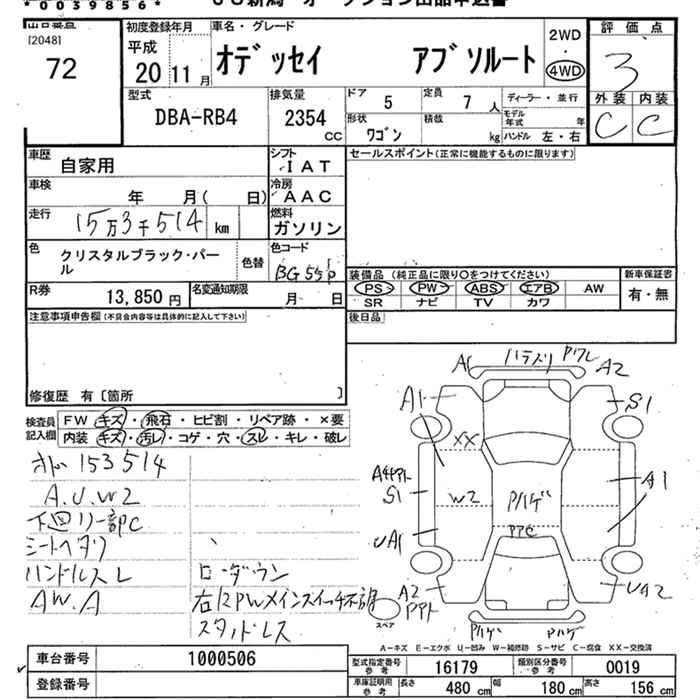 *0039856*
出品番号 初度登録年月 車名・グレード 2WD 評価点
[2048] 平成 ・
72 20 11月 オデッセイ アブソルート 4WD 3
型式 排気量 ドア 5 定員 7人 ディーラー・並行 外装 内装
DBA-RB4 2354 cc 形状 ワゴン 積載 kg モデル年式 年 C C
ハンドル 左・右
車歴 自家用 シフト I AT セールスポイント(正常に機能するものに限ります)
車検 年 月( 日) 冷房 AAC
走行 15万3千514 km 燃料 ガソリン
色 クリスタルブラック・パール 色替 色コード BG55P
装備品 (純正品に限り○をつけてください) 新車保証書
R券 13,850円 名変通知期限 月 日 PS PW ABS エアB AW 有・無
SR ナビ TV カワ
注意事項申告欄(不具合内容等は具体的に記入して下さい) 後日品
修復歴 有〔箇所 〕
検査員記入欄 FW キズ・飛石・ヒビ割・リペア跡・×要
内装 キズ・汚レ・コゲ・穴・スレ・キレ・破レ
オド 153514
A.U.W2
下回り一部C
シートヘタリ
ハンドルスレ ローダウン
AW.A 右リヤPWメインスイッチ不調
スタッドレス
A1 ハラズリ A2
A1 S1
XX
A4 S1 W2 Pハゲ A1
UA1
A2 UA2
スペア Pハゲ Pハゲ
A-キズ E-エクボ U-凹み W-補修跡 S-サビ C-腐食 XX-交換済
車台番号 1000506 型式指定番号 参考 16179 類別区分番号 参考 0019
登録番号 車庫証明用 参考 長さ 480cm 幅 180cm 高さ 156cm